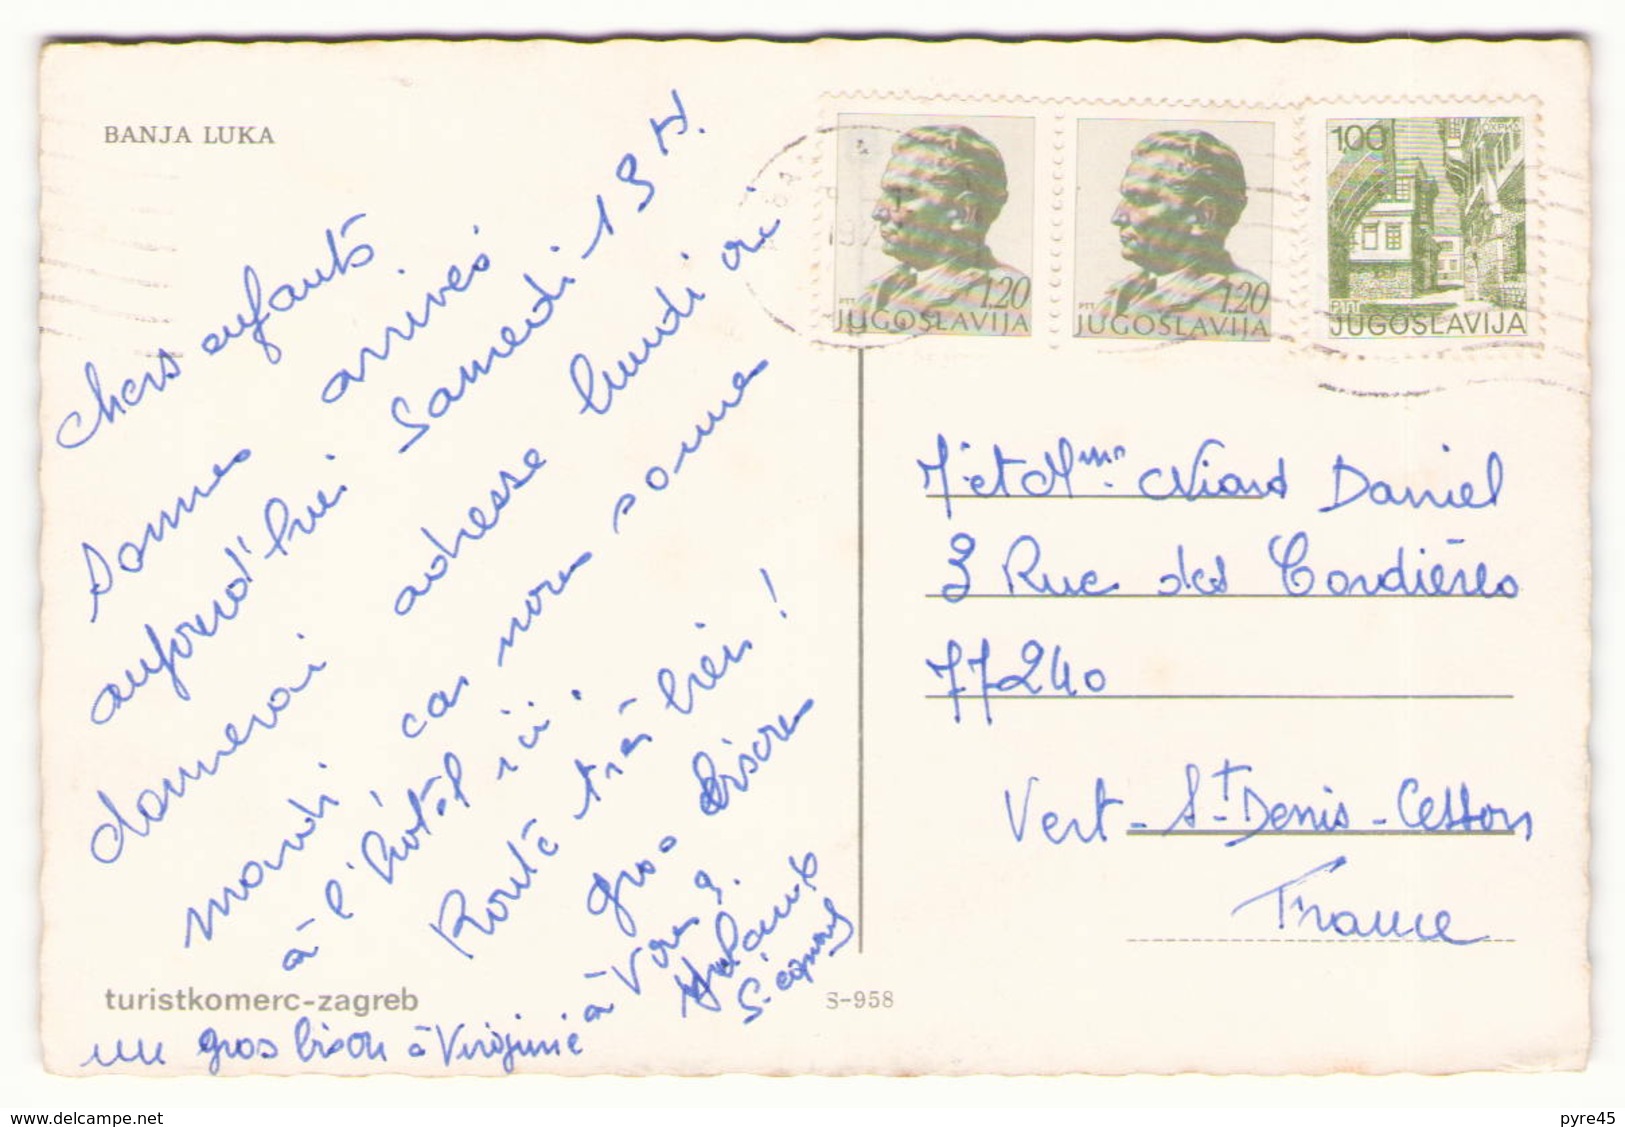 BANJA LUKA
chers enfants
sommes arrivés
aujourd'hui Samedi 19 H.
donnerai adresse lundi ou
mardi, car nous somme
à l'hotel ici.
Route très bien !
gros Bisous
à Vous 2.
un gros bisou à Virginie
turistkomerc-zagreb
S-958
1.20
PTT
JUGOSLAVIJA
1.20
PTT
JUGOSLAVIJA
1.00
ОХРИД
PTT
JUGOSLAVIJA
M. et Mme Niard Daniel
3 Rue des Cordières
77240
Vert-St Denis-Cesson
France
www.delcampe.net
pyre45